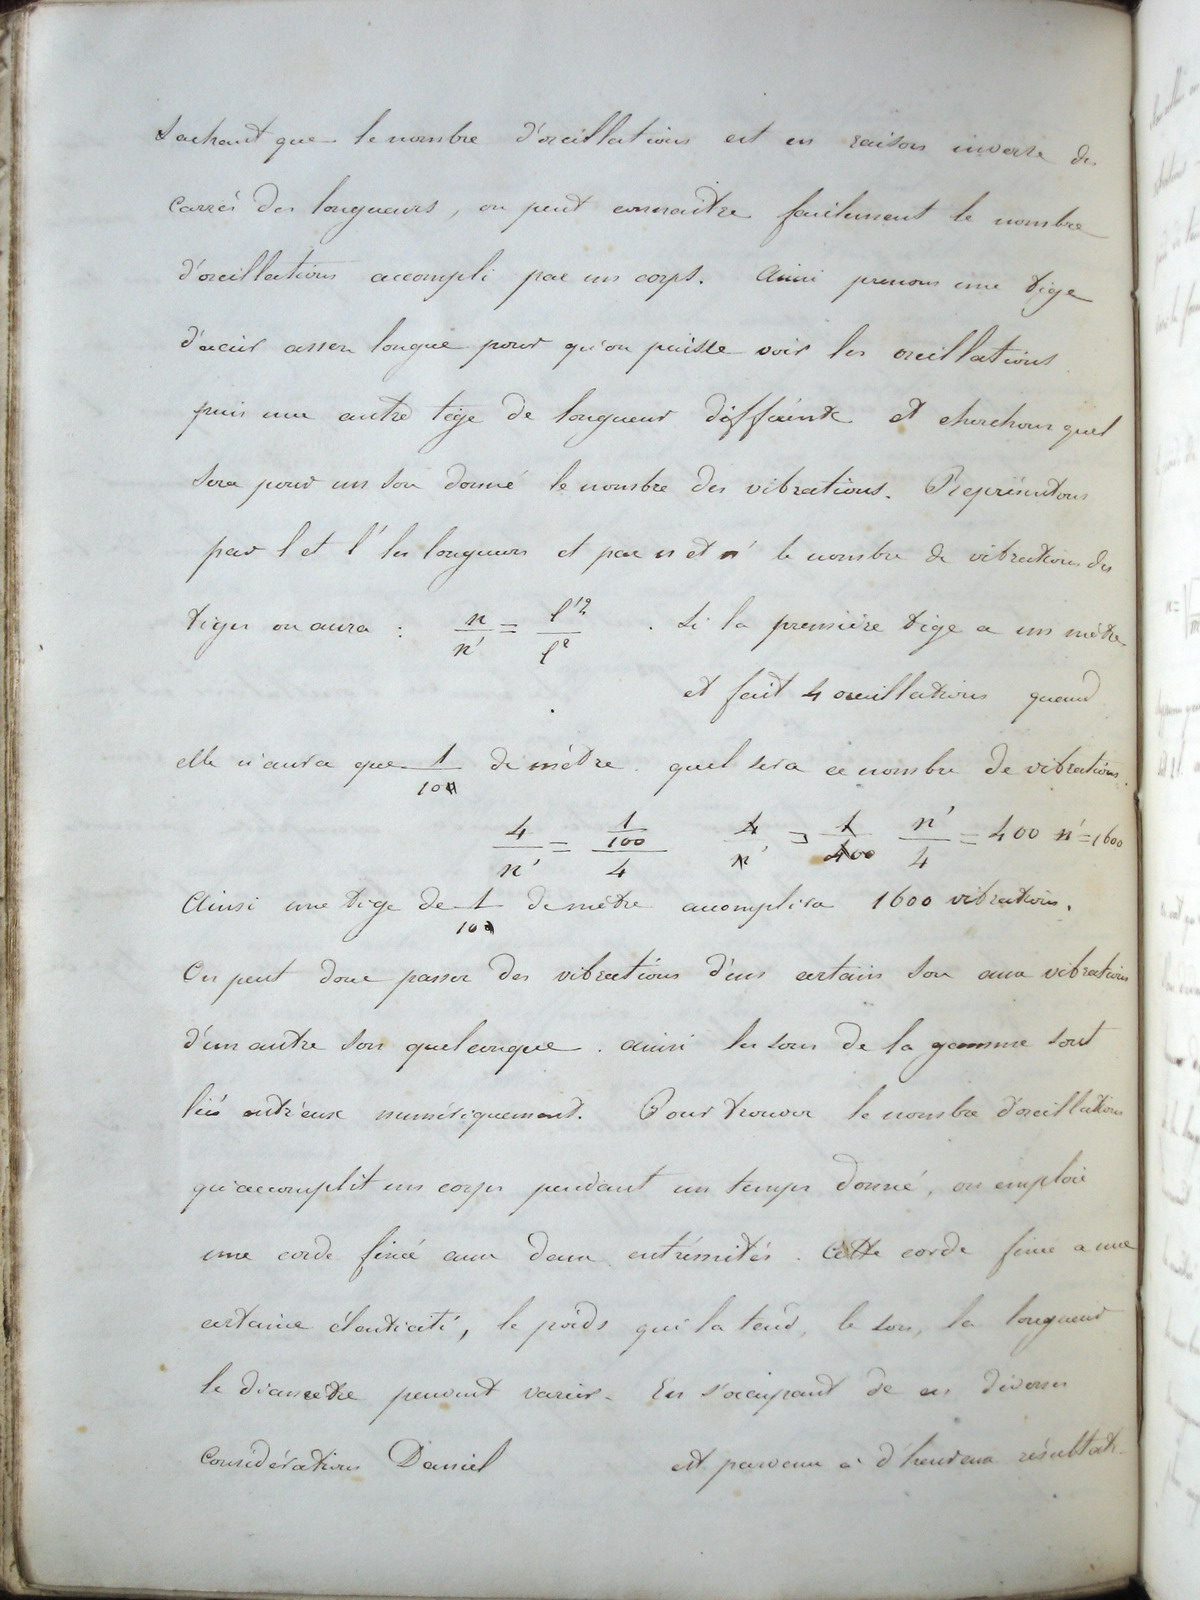 Sachant que le nombre d'oscillations est en raison inverse des
carrés des longueurs, on peut connaître facilement le nombre
d'oscillations accompli par un corps. Ainsi prenons une tige
d'acier assez longue pour qu'on puisse voir les oscillations
puis une autre tige de longueur différente et cherchons quel
sera pour un son donné le nombre des vibrations. Représentons
par l et l' les longueurs et par n et n' le nombre de vibrations des
tiges on aura : n/n' = l'²/l² . Si la première tige a un mètre
et fait 4 oscillations quand
elle n'aura que 1/10 de mètre quel sera ce nombre de vibrations.
4/n' = 1/100/4 4/n' = 1/400 n'/4 = 400 n'=1600
Ainsi une tige de 1/10 de mètre accomplira 1600 vibrations.
On peut donc passer des vibrations d'un certain son aux vibrations
d'un autre son quelconque. ainsi les sons de la gamme sont
liés entr'eux numériquement. Pour trouver le nombre d'oscillations
qu'accomplit un corps pendant un temps donné, on emploie
une corde fixée aux deux extrémités. Cette corde fixée a une
certaine élasticité, le poids qui la tend, le son, la longueur
le diamètre peuvent varier. En s'occupant de ces diverses
considérations Daniel est parvenu à d'heureux résultats.